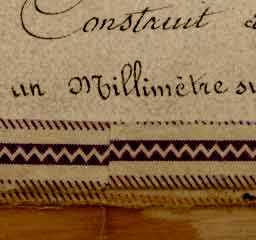 Construit
un Millimètre